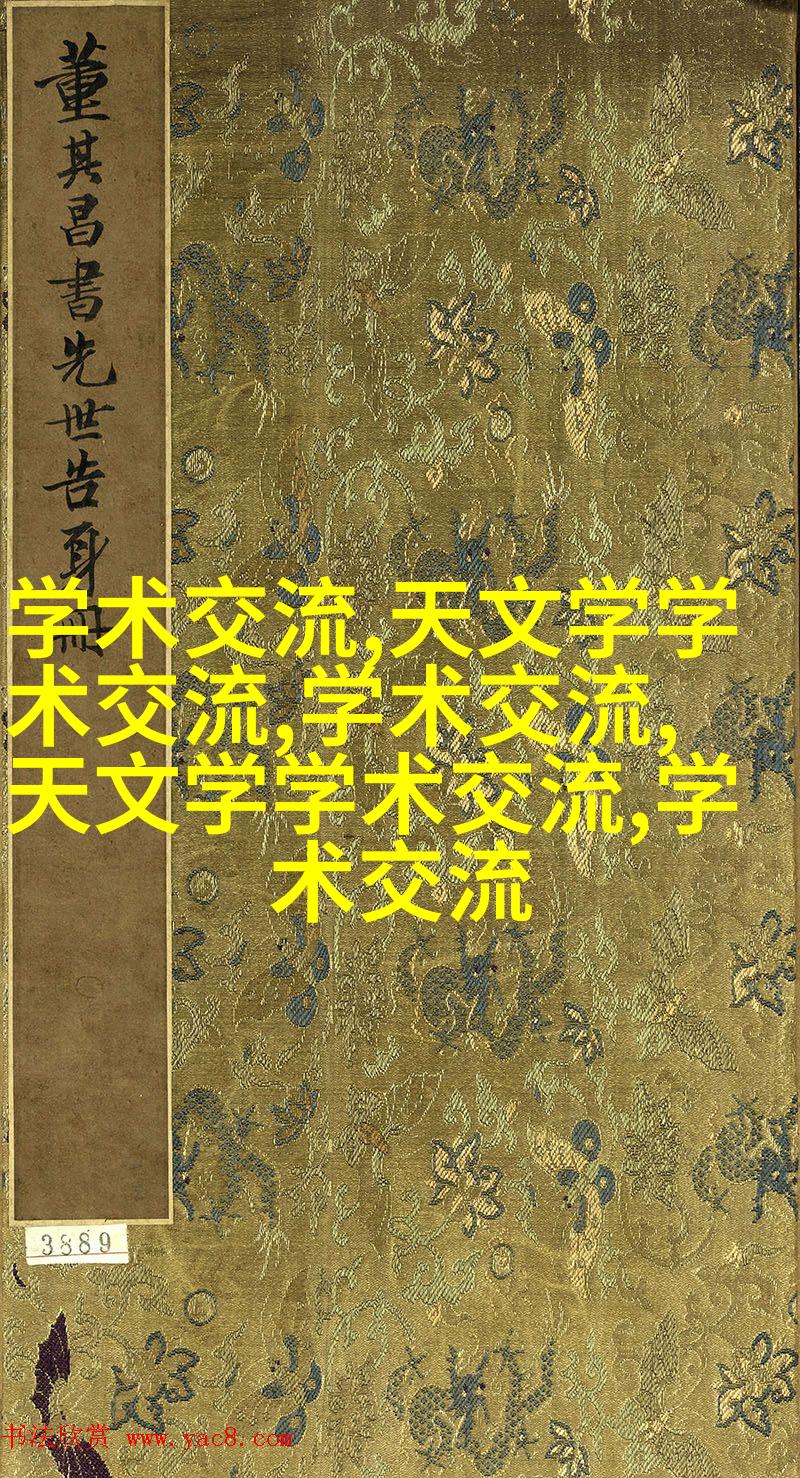 董其昌書先世告身冊
学术交流,天文学学
术交流,学术交流,
天文学学术交流,学
术交流
3889
书法欣赏 www.yac8.com